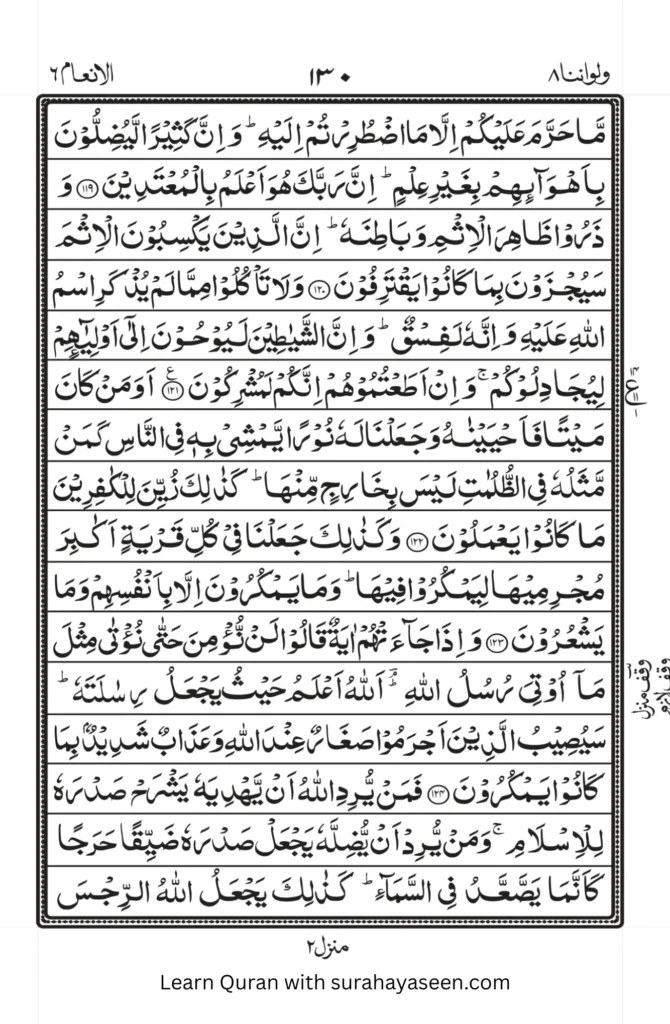 ولواننا ٨ ١٣٠ الانعام ٦
مَّا حَرَّمَ عَلَيْكُمْ اِلَّا مَا اضْطُرِرْتُمْ اِلَيْهِ ؕ وَ اِنَّ كَثِيْرًا لَّيُضِلُّوْنَ
بِاَهْوَآئِهِمْ بِغَيْرِ عِلْمٍ ؕ اِنَّ رَبَّكَ هُوَ اَعْلَمُ بِالْمُعْتَدِيْنَ ﴿۱۱۹﴾ وَ
ذَرُوْا ظَاهِرَ الْاِثْمِ وَ بَاطِنَهٗ ؕ اِنَّ الَّذِيْنَ يَكْسِبُوْنَ الْاِثْمَ
سَيُجْزَوْنَ بِمَا كَانُوْا يَقْتَرِفُوْنَ ﴿۱۲۰﴾ وَلَا تَاْكُلُوْا مِمَّا لَمْ يُذْكَرِ اسْمُ
اللّٰهِ عَلَيْهِ وَ اِنَّهٗ لَفِسْقٌ ؕ وَ اِنَّ الشَّيٰطِيْنَ لَيُوْحُوْنَ اِلٰۤى اَوْلِيٰٓـِٕهِمْ
لِيُجَادِلُوْكُمْ ۚ وَ اِنْ اَطَعْتُمُوْهُمْ اِنَّكُمْ لَمُشْرِكُوْنَ ﴿۱۲۱﴾ ع اَوَ مَنْ كَانَ
مَيْتًا فَاَحْيَيْنٰهُ وَ جَعَلْنَا لَهٗ نُوْرًا يَّمْشِيْ بِهٖ فِي النَّاسِ كَمَنْ
مَّثَلُهٗ فِي الظُّلُمٰتِ لَيْسَ بِخَارِجٍ مِّنْهَا ؕ كَذٰلِكَ زُيِّنَ لِلْكٰفِرِيْنَ
مَا كَانُوْا يَعْمَلُوْنَ ﴿۱۲۲﴾ وَكَذٰلِكَ جَعَلْنَا فِيْ كُلِّ قَرْيَةٍ اَكٰبِرَ
مُجْرِمِيْهَا لِيَمْكُرُوْا فِيْهَا ؕ وَمَا يَمْكُرُوْنَ اِلَّا بِاَنْفُسِهِمْ وَمَا
يَشْعُرُوْنَ ﴿۱۲۳﴾ وَ اِذَا جَآءَتْهُمْ اٰيَةٌ قَالُوْا لَنْ نُّؤْمِنَ حَتّٰى نُؤْتٰى مِثْلَ
مَاۤ اُوْتِيَ رُسُلُ اللّٰهِ ؔۘؕ اَللّٰهُ اَعْلَمُ حَيْثُ يَجْعَلُ رِسٰلَتَهٗ ؕ
سَيُصِيْبُ الَّذِيْنَ اَجْرَمُوْا صَغَارٌ عِنْدَ اللّٰهِ وَعَذَابٌ شَدِيْدٌۢ بِمَا
كَانُوْا يَمْكُرُوْنَ ﴿۱۲۴﴾ فَمَنْ يُّرِدِ اللّٰهُ اَنْ يَّهْدِيَهٗ يَشْرَحْ صَدْرَهٗ
لِلْاِسْلَامِ ۚ وَمَنْ يُّرِدْ اَنْ يُّضِلَّهٗ يَجْعَلْ صَدْرَهٗ ضَيِّقًا حَرَجًا
كَاَنَّمَا يَصَّعَّدُ فِي السَّمَآءِ ؕ كَذٰلِكَ يَجْعَلُ اللّٰهُ الرِّجْسَ
منزل ٢
Learn Quran with surahayaseen.com